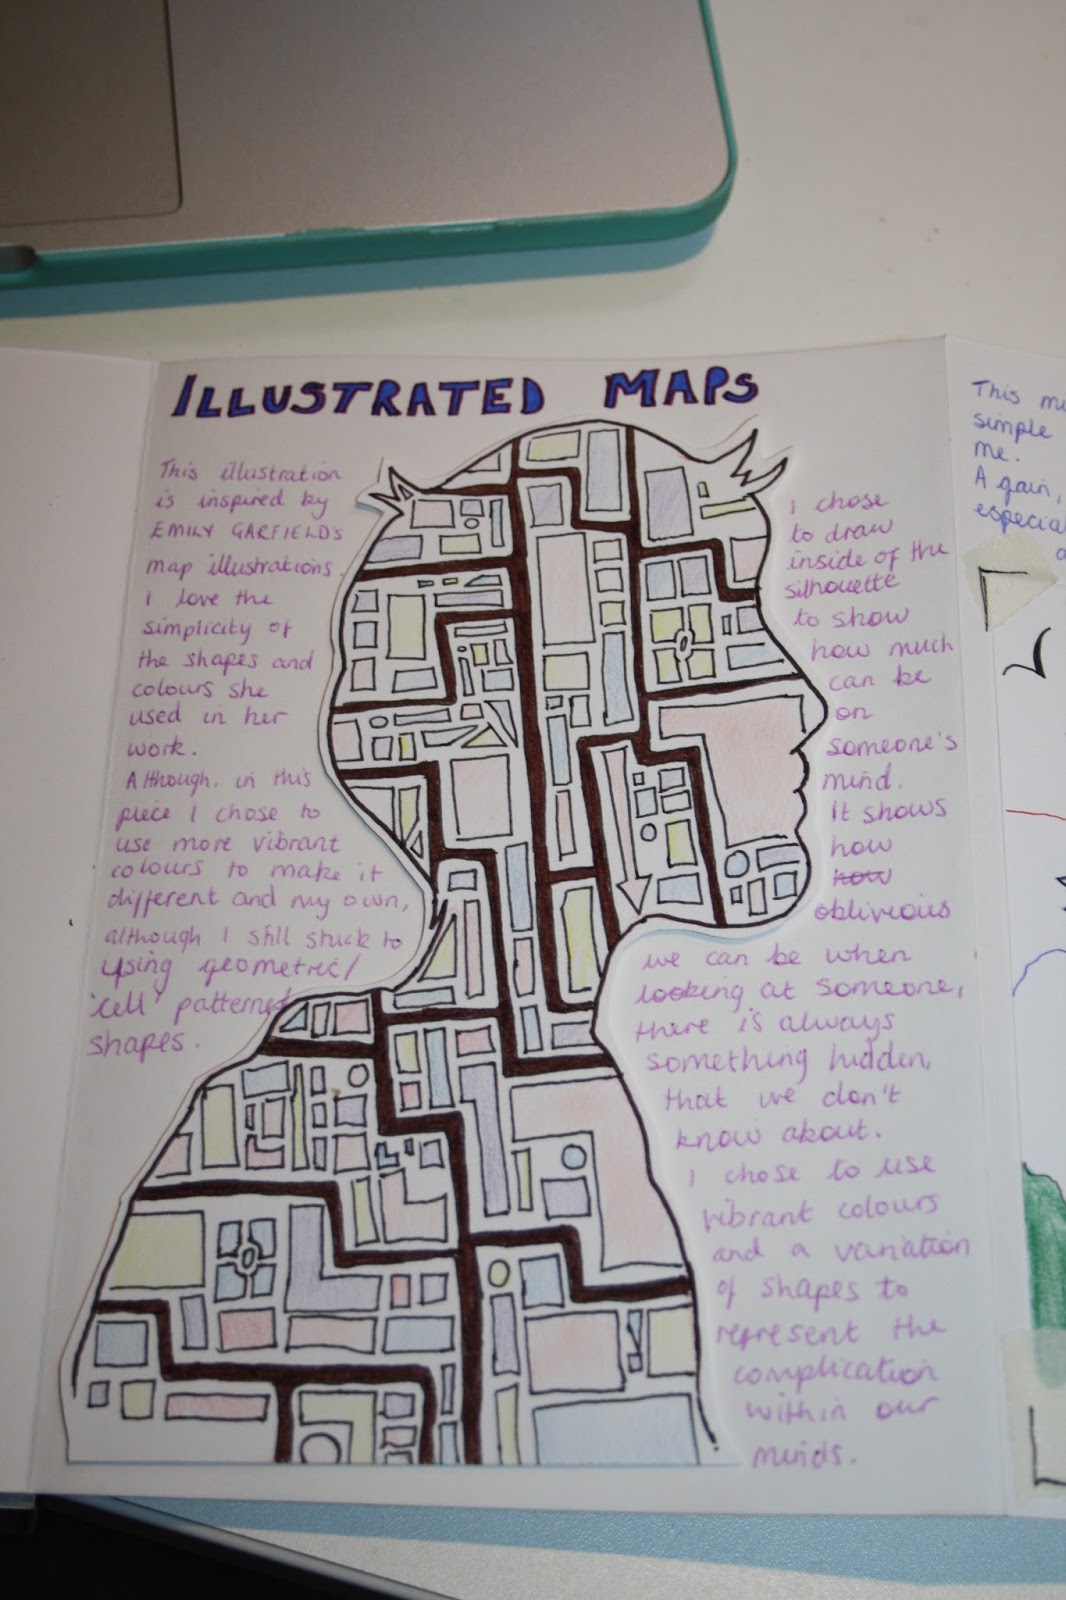 ILLUSTRATED MAPS
This illustration
is inspired by
EMILY GARFIELD'S
map illustrations.
I love the
simplicity of
the shapes and
colours she
used in her
work.
Although, in this
piece I chose to
use more vibrant
colours to make it
different and my own,
although I still stuck to
using geometric/
'cell' patterned
shapes.
I chose
to draw
inside of the
silhouette
to show
how much
can be
on
someone's
mind.
It shows
how
how
oblivious
we can be when
looking at someone,
there is always
something hidden,
that we don't
know about.
I chose to use
vibrant colours
and a variation
of shapes to
represent the
complication
within our
minds.
This
simple
me.
Again,